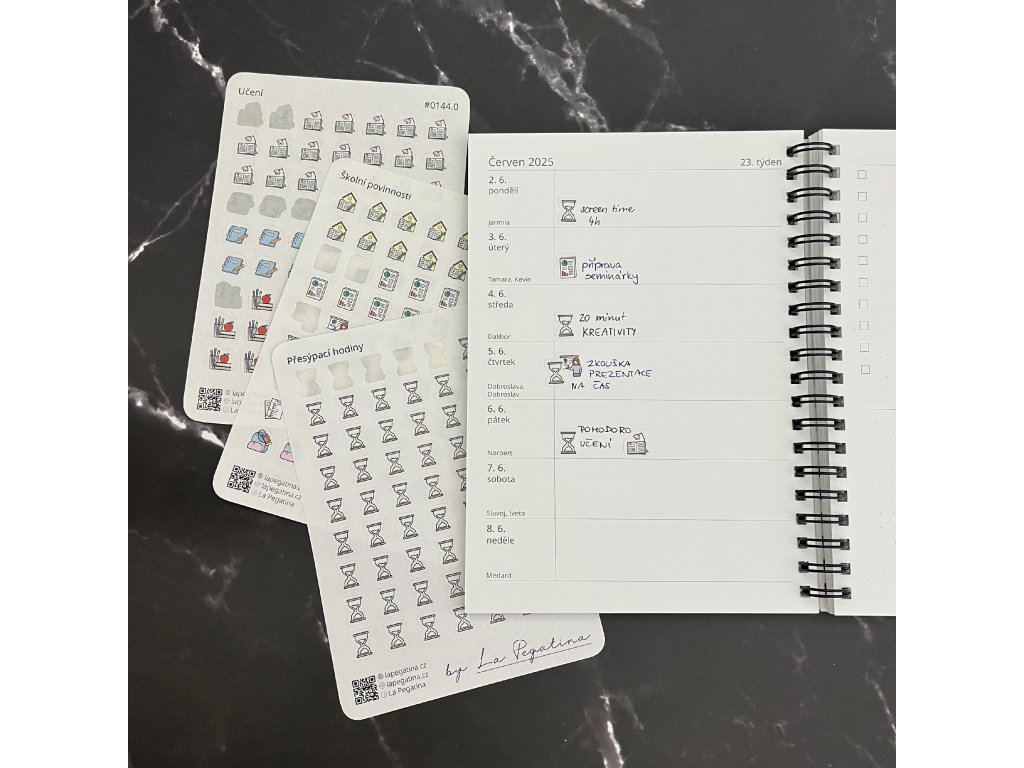 Učení
#0144.0
Školní povinnosti
Přesýpací hodiny
lapegatina.cz
lapegatina.cz
La Pegatina
lapegatina.cz
lapegatina.cz
La Pegatina
by La Pegatina
Červen 2025
23. týden
2. 6.
pondělí
Jarmila
screen time
4h
3. 6.
úterý
Tamara, Kevin
příprava
seminárky
4. 6.
středa
Dalibor
20 minut
KREATIVITY
5. 6.
čtvrtek
Dobroslava,
Dobroslav
ZKOUŠKA
PREZENTACE
NA ČAS
6. 6.
pátek
Norbert
POMODORO
UČENÍ
7. 6.
sobota
Slavoj, Iveta
8. 6.
neděle
Medard